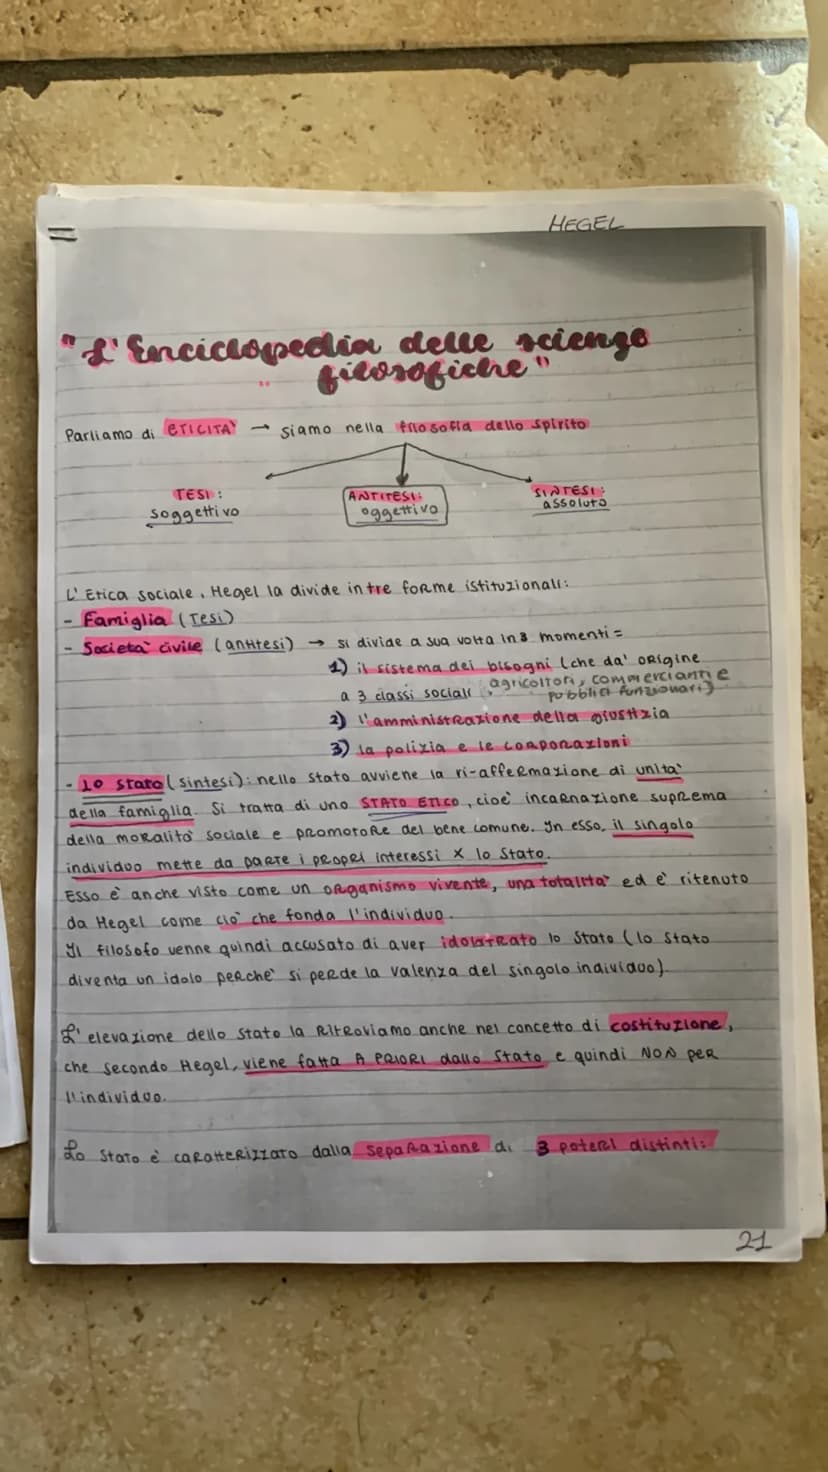 HEGEL
"L'Enciclopedia delle scienze
filosofiche"
Parliamo di ETICITA' → siamo nella filosofia dello spirito
TESI:
soggettivo
ANTITESI:
oggettivo
SINTESI:
assoluto
L'Etica sociale, Hegel la divide in tre forme istituzionali:
- Famiglia (Tesi)
- Società civile (antitesi) → si divide a sua volta in 3 momenti =
1) il sistema dei bisogni (che da' origine
a 3 classi sociali: agricoltori, commercianti e
pubblici funzionari)
2) l'amministrazione della giustizia
3) la polizia e le corporazioni
- lo stato (sintesi): nello stato avviene la ri-affermazione di unita'
della famiglia. Si tratta di uno STATO ETICO, cioe' incarnazione suprema
della moralità sociale e promotore del bene comune. In esso, il singolo
individuo mette da parte i propri interessi x lo Stato.
Esso è anche visto come un organismo vivente, una totalita' ed e' ritenuto
da Hegel come cio' che fonda l'individuo.
Il filosofo venne quindi accusato di aver idolatrato lo Stato (lo Stato
diventa un idolo perche' si perde la valenza del singolo individuo).
L'elevazione dello Stato la ritroviamo anche nel concetto di costituzione,
che secondo Hegel, viene fatta A PRIORI dallo Stato e quindi NON per
l'individuo.
Lo Stato è caratterizzato dalla separazione di 3 poteri distinti:
21